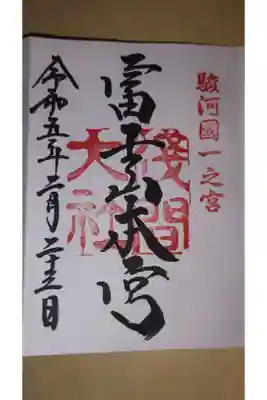 駿河國一之宮
富士山本宮
淺間大社
令和五年二月二十三日